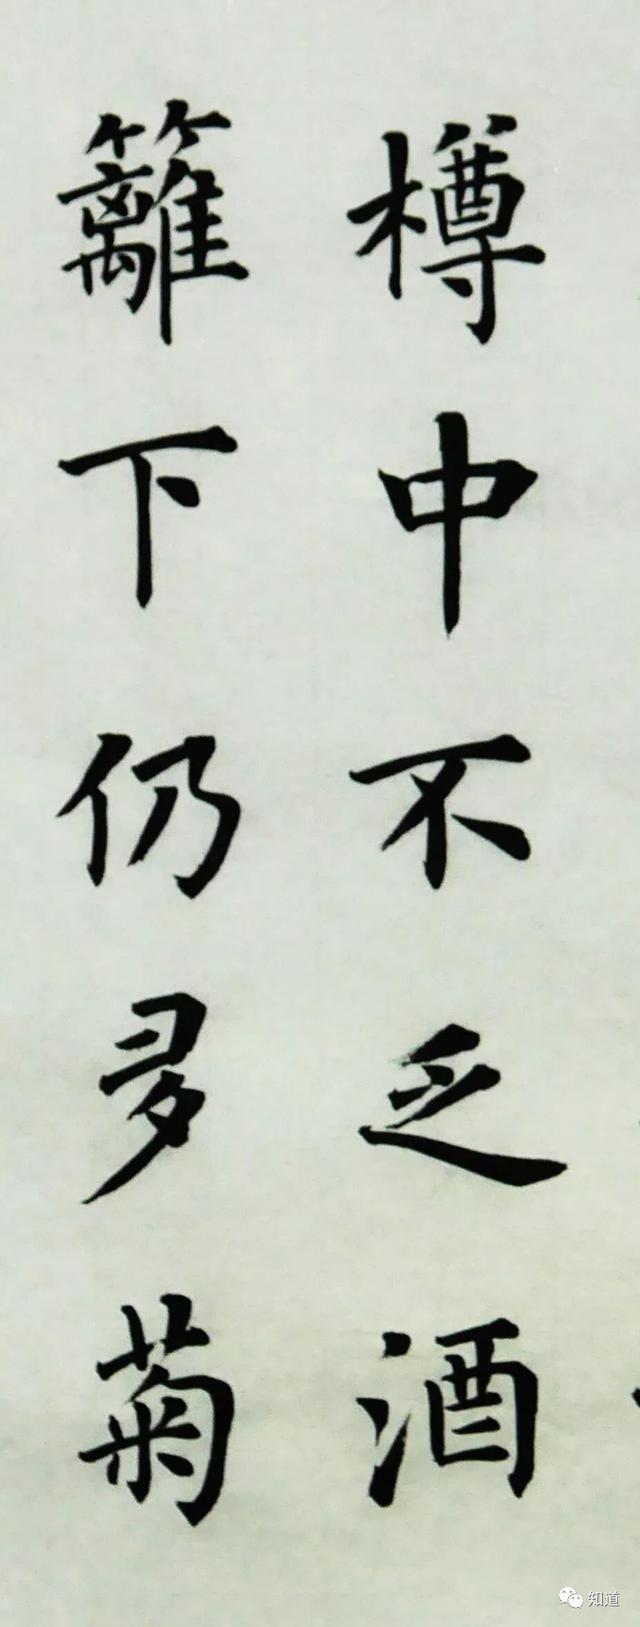 樽中不乏酒
籬下仍多菊
知道